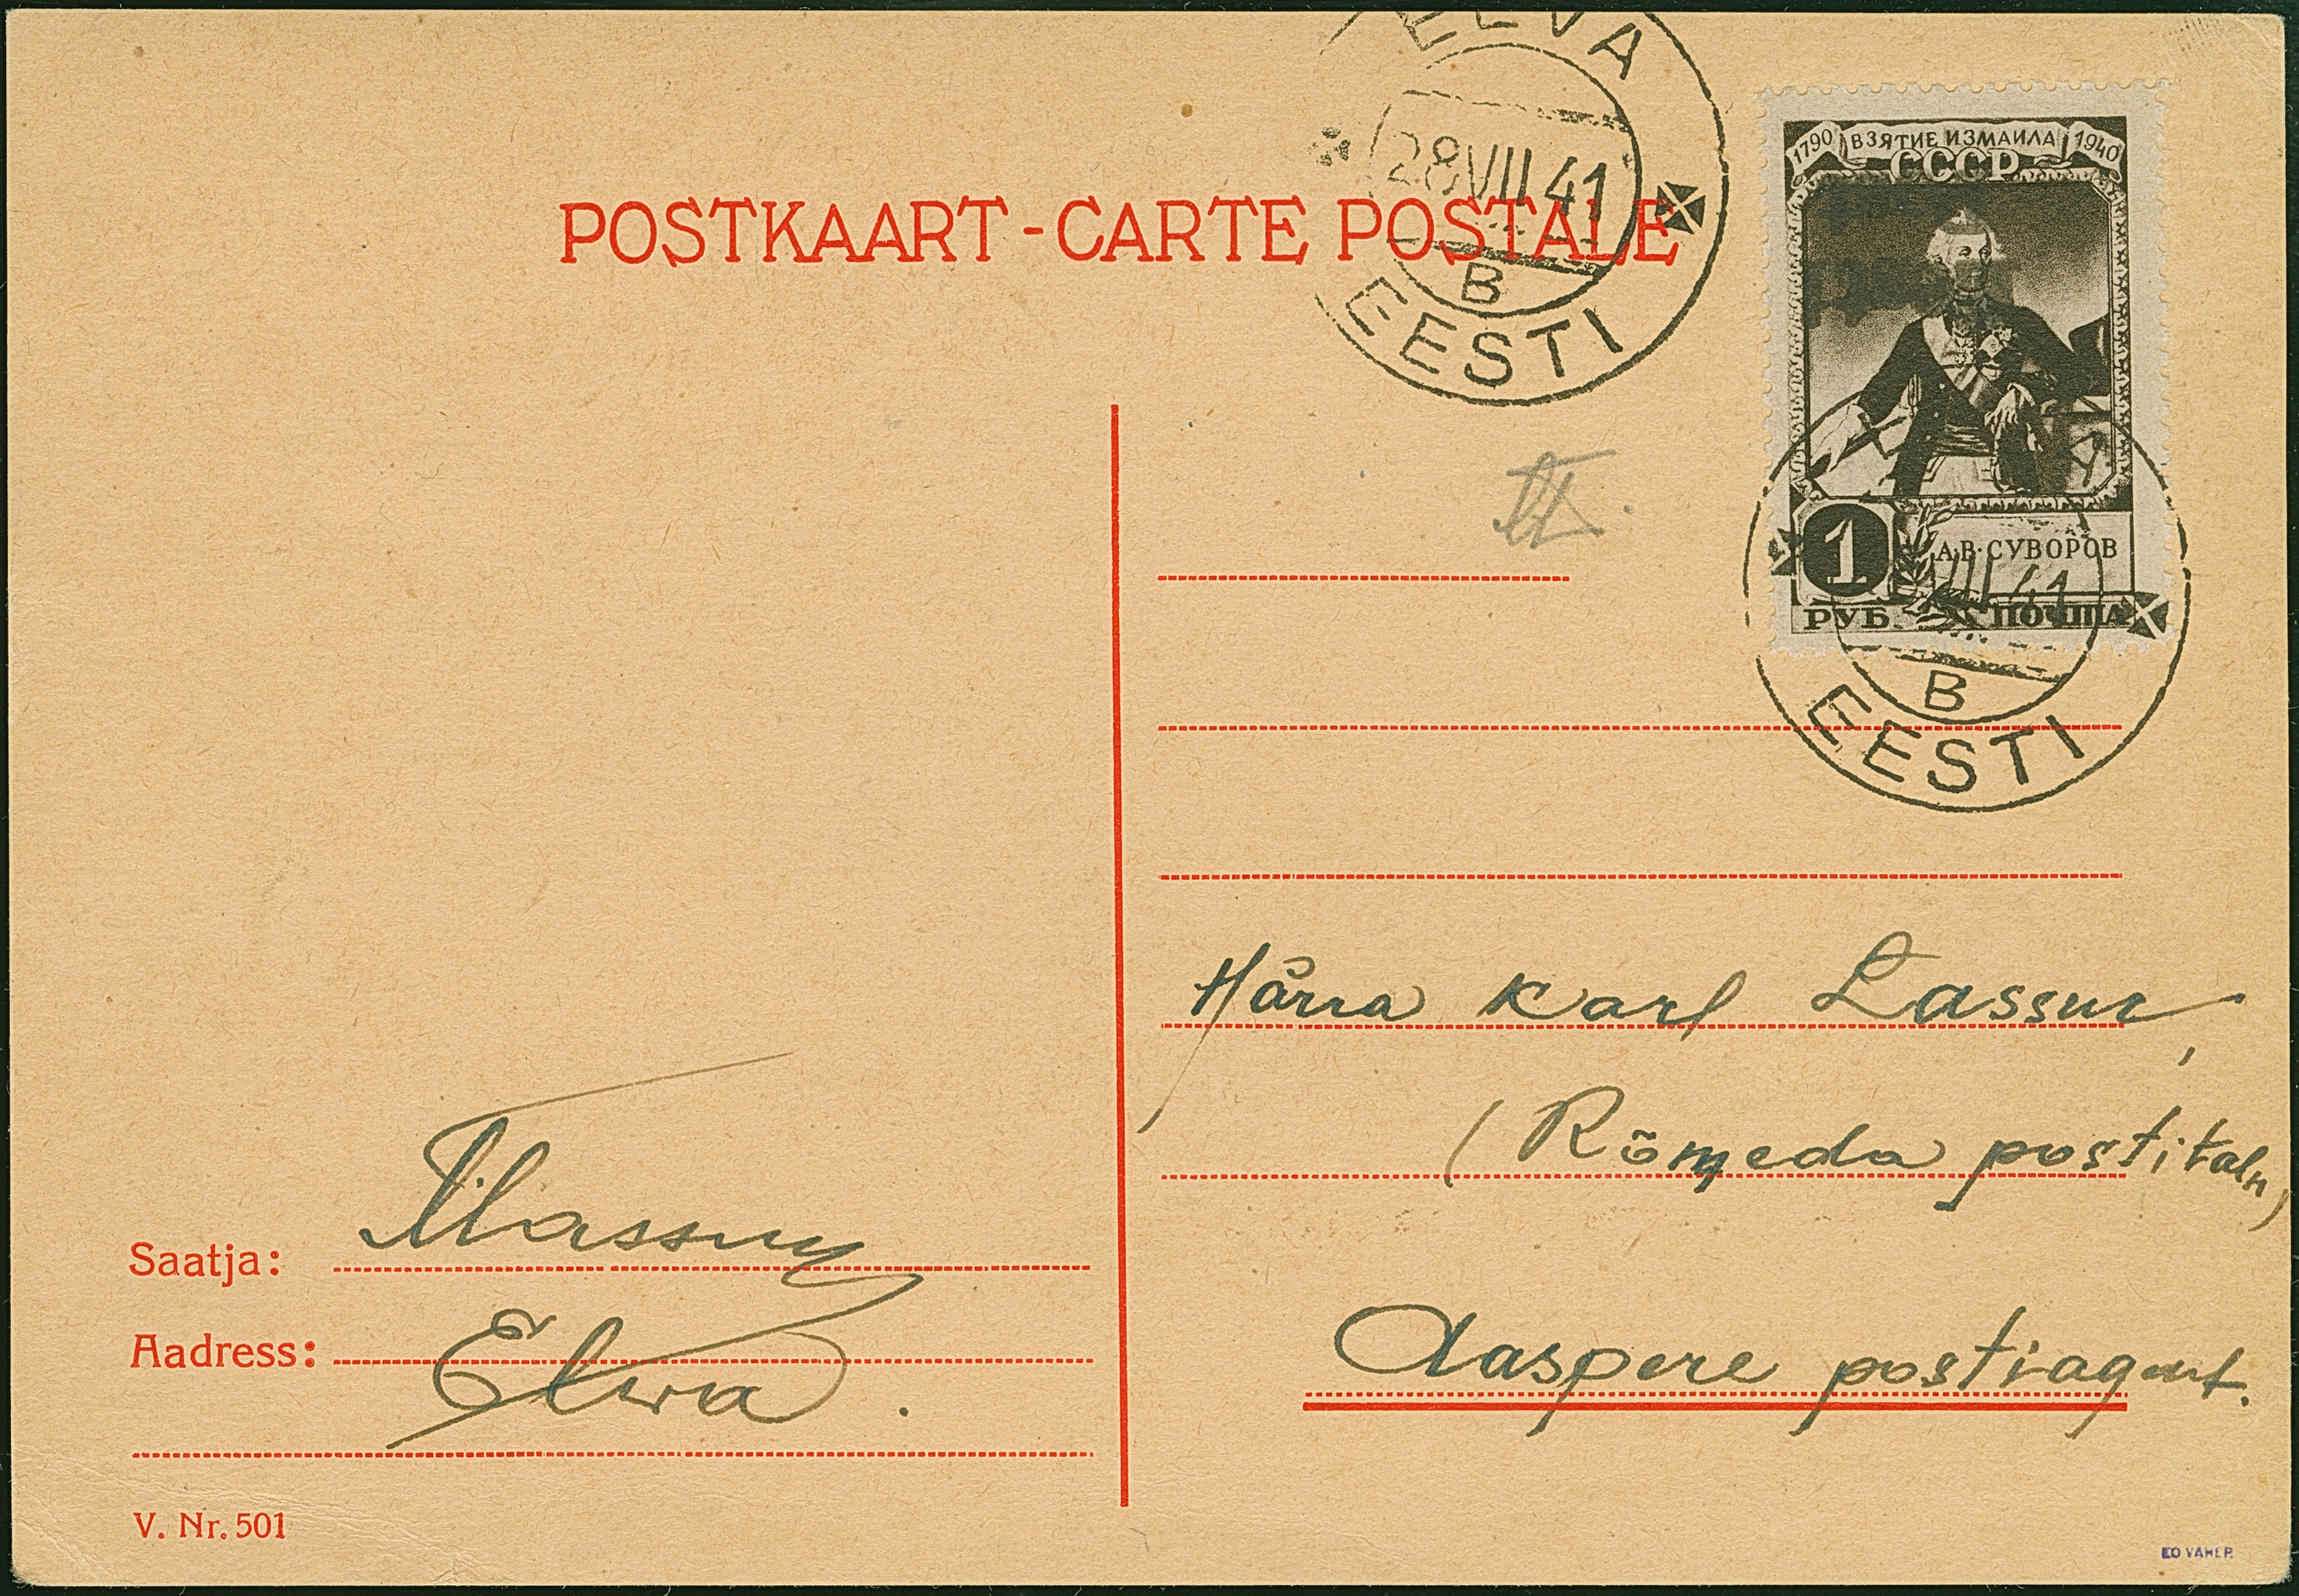 ELVA
28 VII 41
B
EESTI
POSTKAART - CARTE POSTALE
1790 ВЗЯТИЕ ИЗМАИЛА 1940
СССР
1
А.В. СУВОРОВ
РУБ. ПОЧТА
VII 41
B
EESTI
Härra Karl Lassur,
(Rõmeda postitaln)
Aaspere postiagent.
Saatja: Massuy
Aadress: Elwa.
V. Nr. 501
EO VAHER